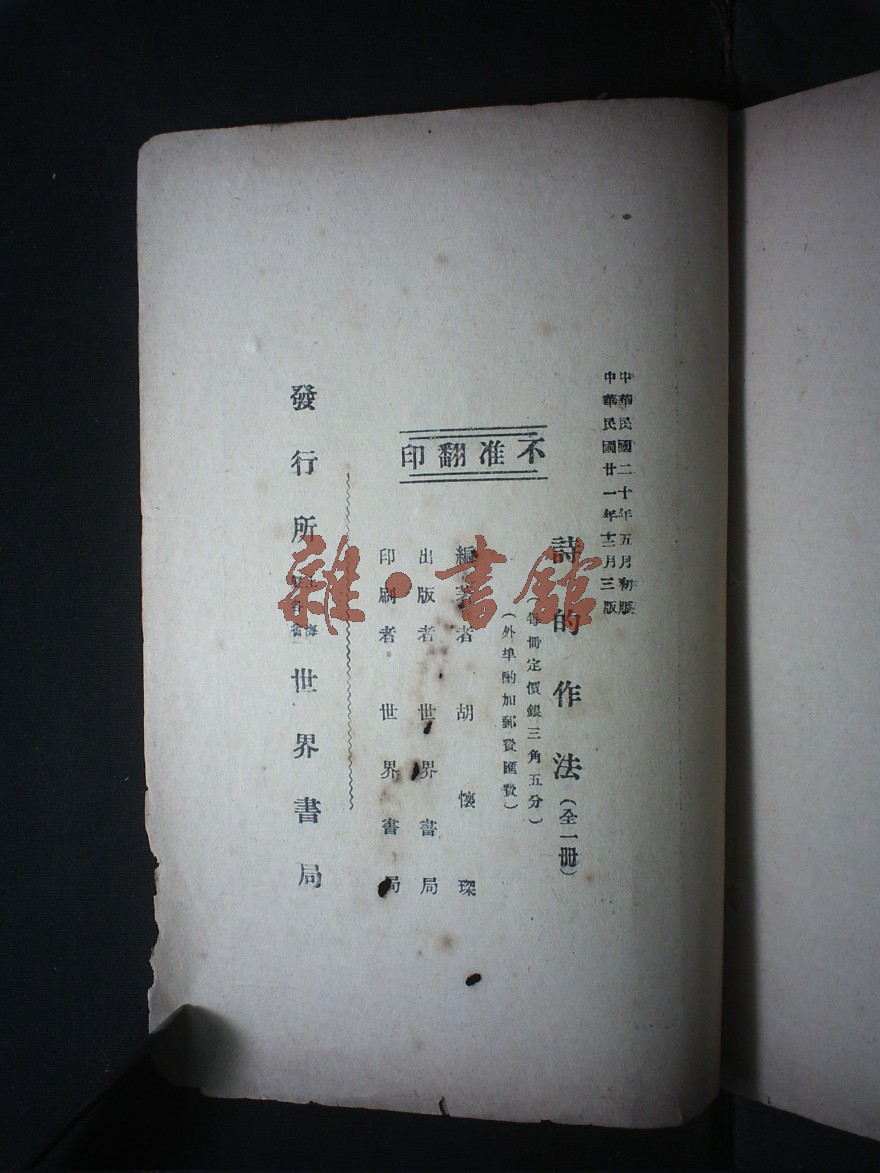 中華民國二十年五月初版
中華民國廿一年十二月三版
詩的作法（全一冊）
（每冊定價銀三角五分）
（外埠酌加郵費匯費）
不准翻印
編著者 胡懷琛
出版者 世界書局
印刷者 世界書局
發行所 上海 各省 世界書局
雜·書館